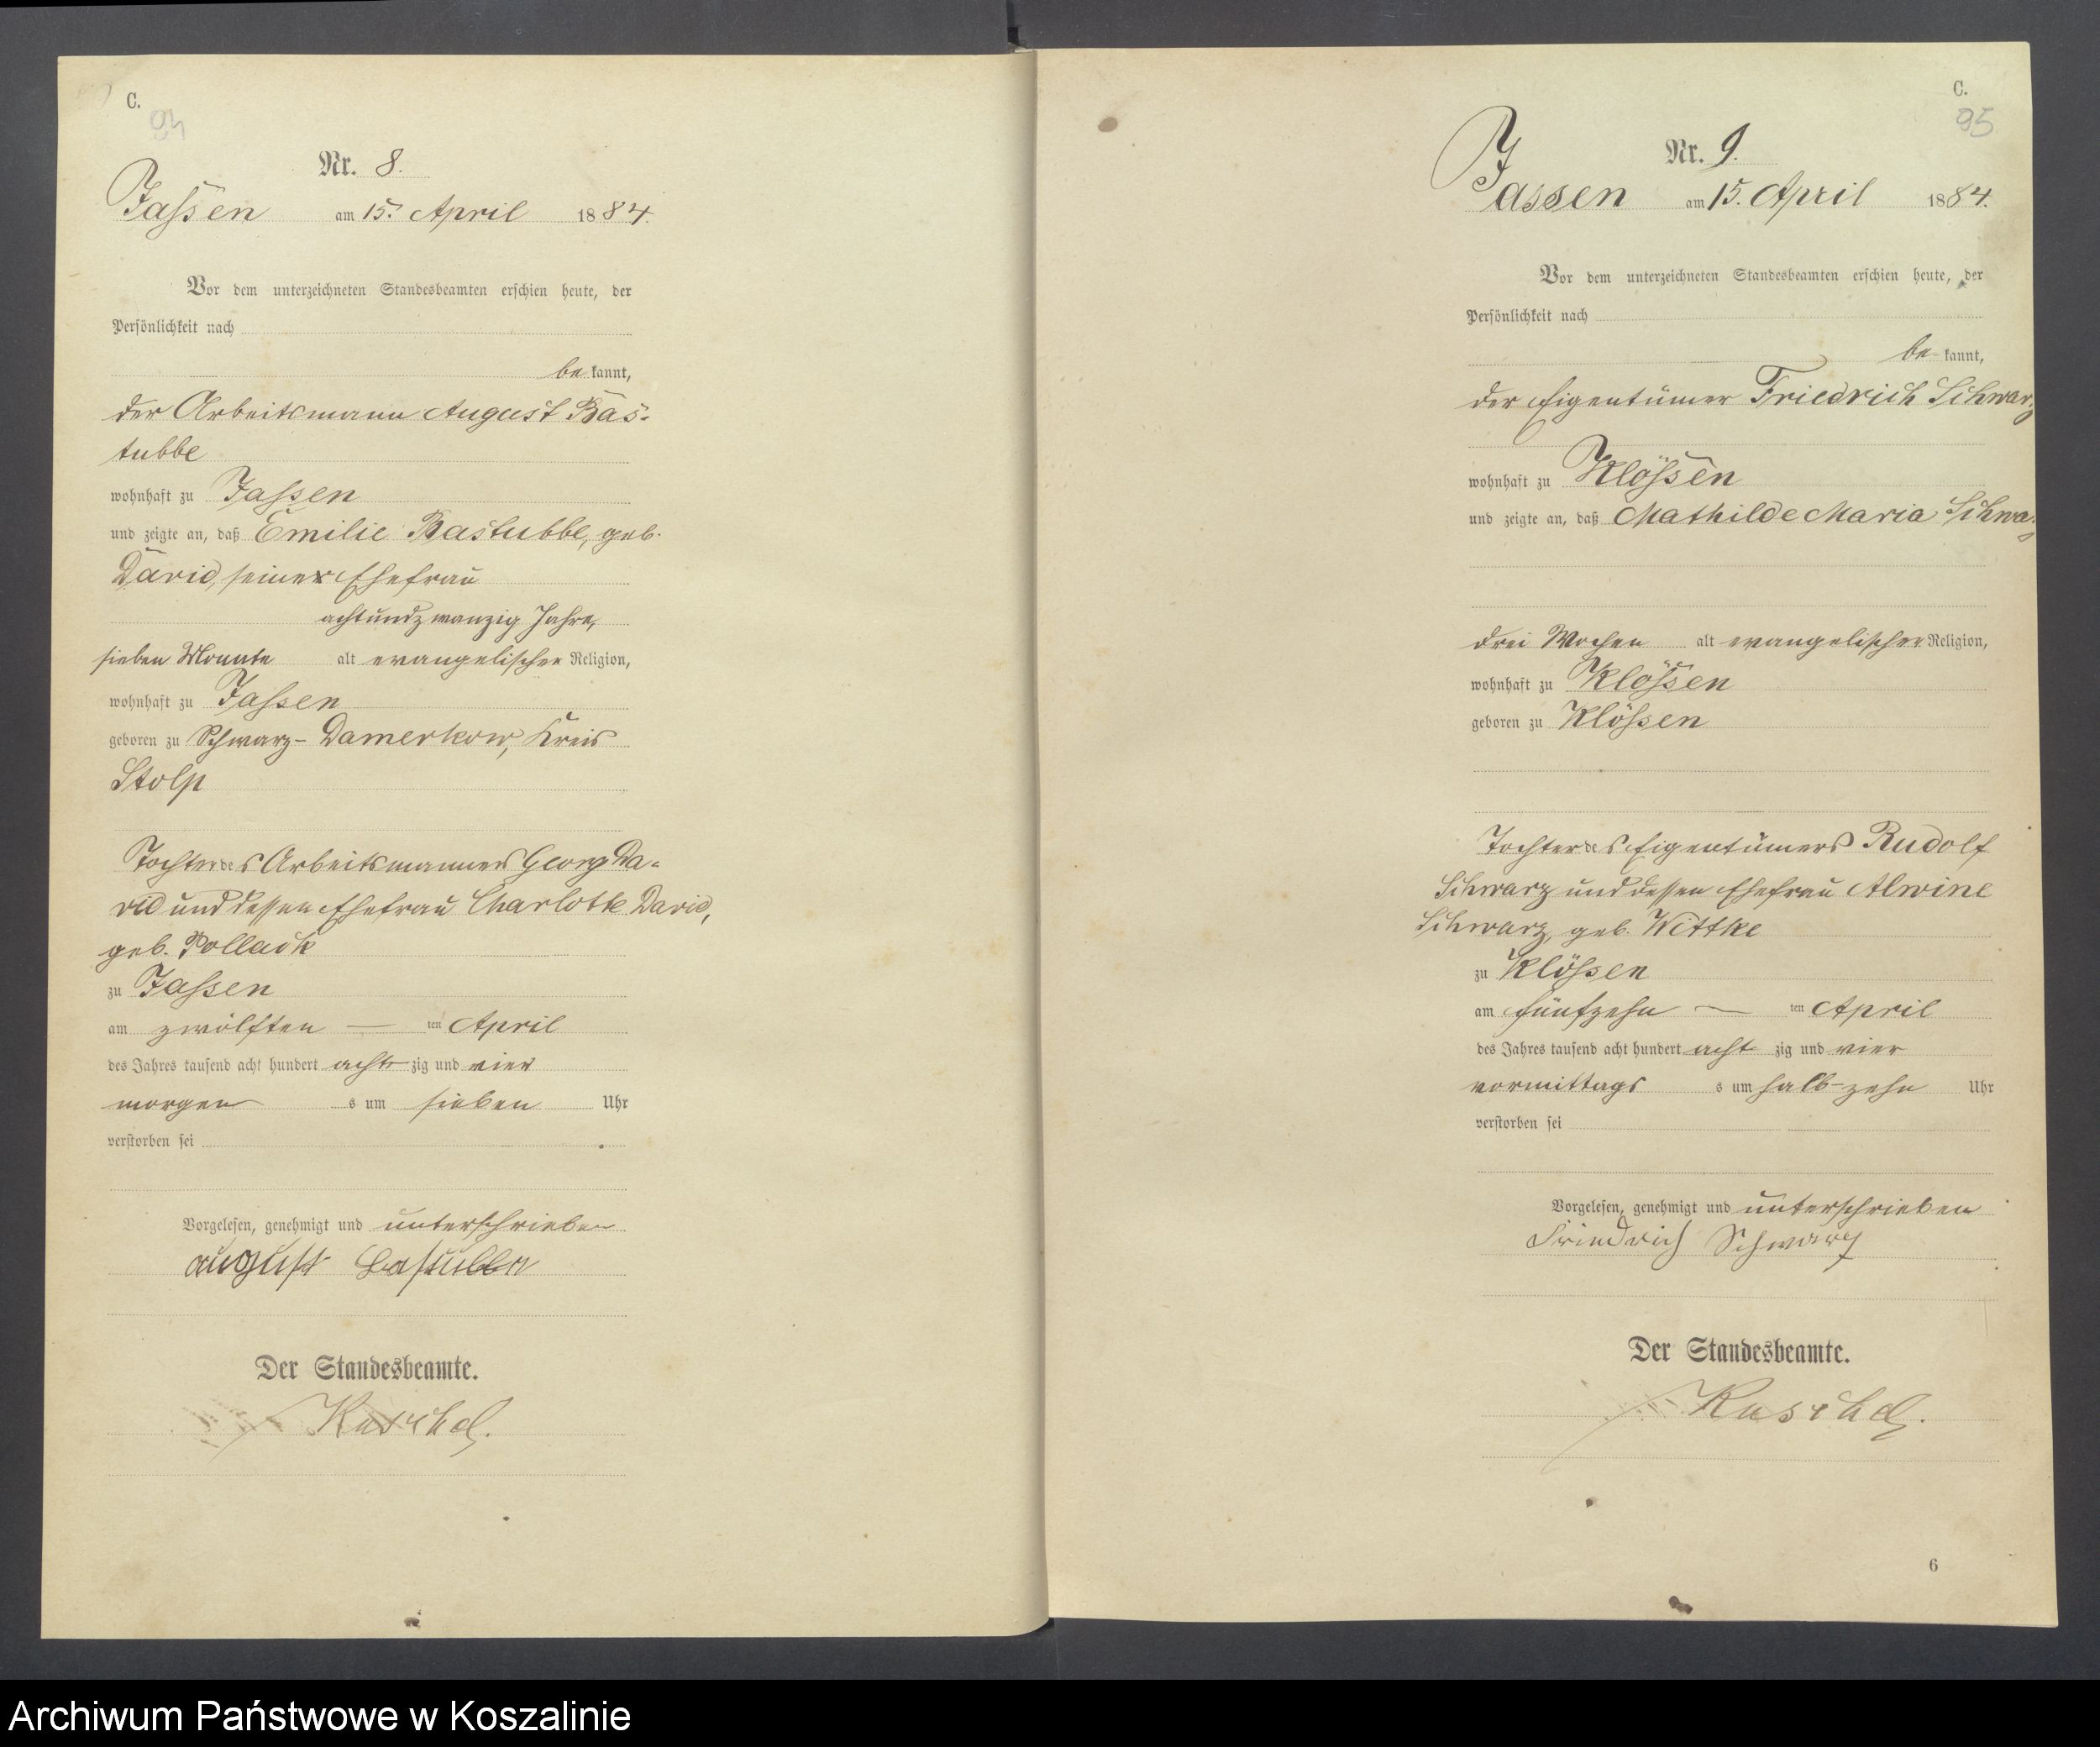 C.
94
Nr. 8.
Jassen am 15. April 1884.
Vor dem unterzeichneten Standesbeamten erschien heute, der
Persönlichkeit nach
be kannt,
der Arbeitsmann August Bas-
tubbe
wohnhaft zu Jassen
und zeigte an, daß Emilie Bastubbe, geb.
David, seine Ehefrau
achtundzwanzig Jahre,
sieben Monate alt evangelischer Religion,
wohnhaft zu Jassen
geboren zu Schwarz-Damerkow, Kreis
Stolp
Tochter des Arbeitsmannes Georg Da-
vid und dessen Ehefrau Charlotte David,
geb. Pollack
zu Jassen
am zwölften — ten April
des Jahres tausend acht hundert acht zig und vier
morgen s um sieben Uhr
verstorben sei
Vorgelesen, genehmigt und unterschrieben
august Bastubbe
Der Standesbeamte.
Kuschel.
C.
95
Nr. 9.
Jassen am 15. April 1884.
Vor dem unterzeichneten Standesbeamten erschien heute, der
Persönlichkeit nach
be kannt,
der Eigentümer Friedrich Schwarz
wohnhaft zu Klössen
und zeigte an, daß Mathilde Maria Schwarz
drei Wochen alt evangelischer Religion,
wohnhaft zu Klössen
geboren zu Klössen
Tochter des Eigentümers Rudolf
Schwarz und dessen Ehefrau Alwine
Schwarz, geb. Wittke
zu Klössen
am fünfzehn — ten April
des Jahres tausend acht hundert acht zig und vier
vormittags s um halb-zehn Uhr
verstorben sei
Vorgelesen, genehmigt und unterschrieben
Friedrich Schwarz
Der Standesbeamte.
Kuschel.
6
Archiwum Państwowe w Koszalinie